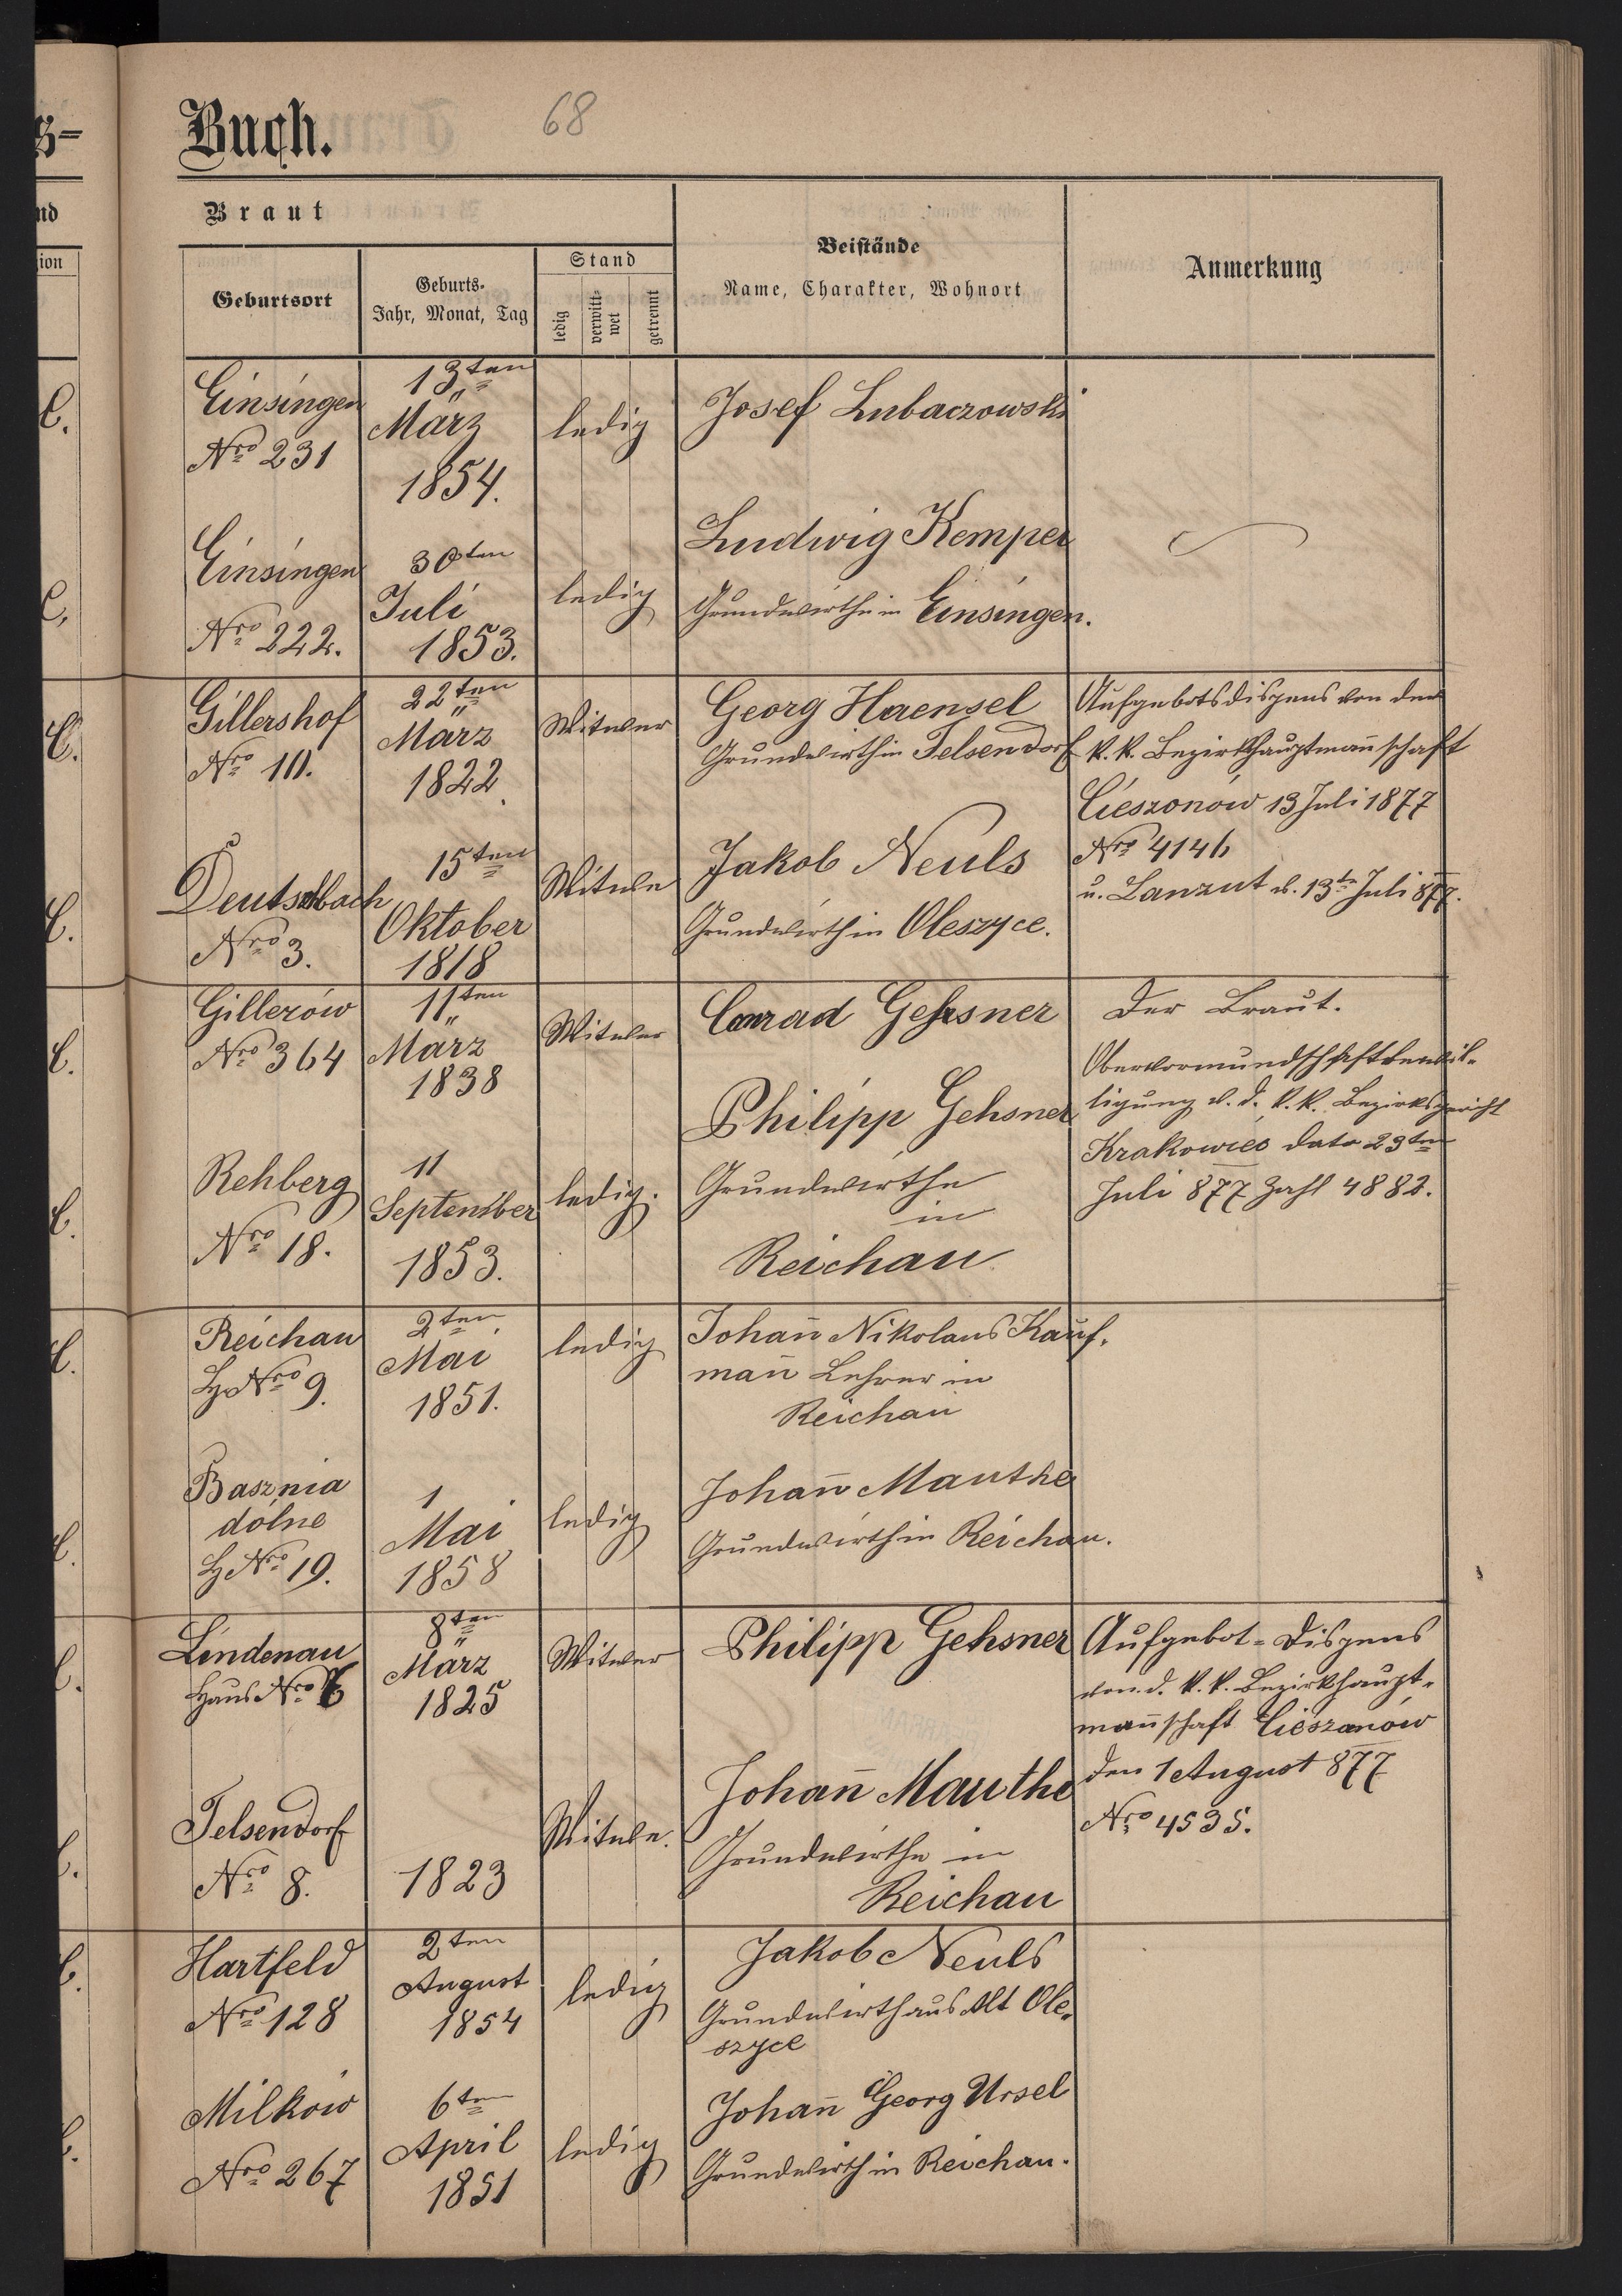 Buch.
68
Braut
Geburtsort
Geburts-
Jahr, Monat, Tag
Stand
ledig
verwitt-
wet
getrennt
Beistände
Name, Charakter, Wohnort
Anmerkung
Einsingen
Nro 231
13ten
März
1854.
ledig
Josef Lubaczowski
Einsingen
Nro 222.
30ten
Juli
1853.
ledig
Ludwig Kemper
Grundwirthe in Einsingen.
Gillershof
Nro 10.
22ten
März
1822.
Witwer
Georg Haensel
Grundwirth in Felsendorf
Aufgebotsdispens von der
k. k. Bezirkshauptmannschaft
Cieszonów 13 Juli 1877
Nro 4146
u. Lanzut d. 13t Juli 877.
Deutschbach
Nro 3.
15ten
Oktober
1818
Witwe
Jakob Neuls
Grundwirth in Oleszyce.
Gillerów
Nro 364
11ten
März
1838
Witwer
Conrad Gehsner
Der Braut.
Obervormundschaftbewil-
ligung v. d. k. k. Bezirksgericht
Krakowiec dato 29ten
Juli 877 Zahl 4882.
Rehberg
Nro 18.
11
September
1853.
ledig.
Philipp Gehsner
Grundwirthe
in
Reichau
Reichau
H Nro 9.
2ten
Mai
1851.
ledig
Johann Nikolaus Kauf-
mann Lehrer in
Reichau
Basznia
dolne
H Nro 19.
1
Mai
1858
ledig
Johann Manthe
Grundwirth in Reichau.
Lindenau
Haus Nro
8ten
März
1825
Witwer
Philipp Gehsner
Aufgebot-Dispens
von d. k. k. Bezirkhaupt-
mannschaft Cieszanów
den 1 August 877
Nro 4535.
Felsendorf
Nro 8.
1823
Witwe.
Johann Manthe
Grundwirthe in
Reichau
Hartfeld
Nro 128
2ten
August
1854
ledig
Jakob Neuls
Grundwirth aus Alt Ole-
szyce
Milków
Nro 267
6ten
April
1851
ledig
Johann Georg Ursel
Grundwirth in Reichau.